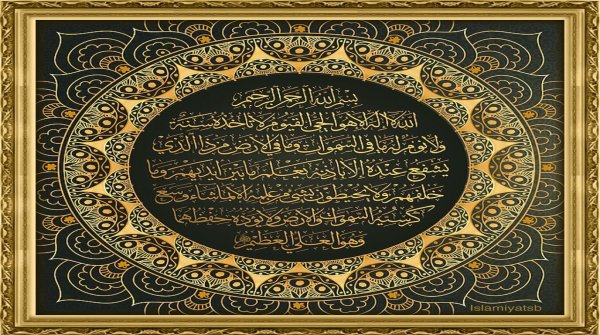 بسم الله الرحمن الرحيم
الله لا إله إلا هو الحي القيوم لا تأخذه سنة
ولا نوم له ما في السموات وما في الأرض من ذا الذي
يشفع عنده إلا بإذنه يعلم ما بين أيديهم وما
خلفهم ولا يحيطون بشيء من علمه إلا بما شاء وسع
كرسيه السموات والأرض ولا يؤده حفظهما
وهو العلي العظيم
Islamiyatsb